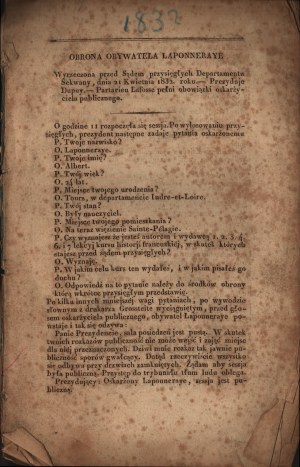 1832
OBRONA OBYWATELA LAPONNERAYE
Wyrzeczona przed Sądem przysięgłych Departamentu
Sekwany, dnia 21 Kwietnia 1832. roku.— Prezyduje
Dupuy.— Partarieu Lafosse pełni obowiązki oskarży-
ciela publicznego.
O godzinie 11 rozpoczęła się sessja. Po wylosowaniu przy-
sięgłych, prezydent następne zadaje pytania oskarżonemu
P. Twoje nazwisko?
O. Laponneraye.
P. Twoje imię?
O. Albert.
P. Twój wiek?
O. 24 lat.
P. Miejsce twojego urodzenia?
O. Tours, w departamencie Indre-et-Loire.
P. Twój stan?
O. Były nauczyciel.
P. Miejsce twojego pomieszkania?
O. Na teraz więzienie Sainte-Pélagie.
P. Czy wyznajesz że jesteś autorem i wydawcą
6, i 7 lekcyj kursu historji francuzkiej, w skutek których
stajesz przed sądem przysięgłych?
O. Wyznaję.
P. W jakim celu kurs ten wydałeś, i w jakim pisałeś go
duchu?
O. Odpowiedź na to pytanie należy do środków obrony
którą wkrótce przysięgłym przedstawię.
Po kilku innych mniejszej wagi pytaniach, po wywodzie
słownym z drukarza Grossteite wyciągniętym, przed gło-
sem oskarżyciela publicznego, obywatel Laponneraye po-
wstaje i tak się odzywa:
Panie Prezydencie, sala posiedzeń jest pustą. W skutek
twoich rozkazów publiczność nie może wejść i zająć miejsc
dla niej przeznaczonych. Dziwi mnie rozkaz tak jawnie pu-
bliczności sporów gwałcący. Dotąd rzeczywiście wszystko
się odbywa przy drzwiach zamkniętych. Żądam aby sessja
była publiczną. Przystęp do trybunału tłum ludu oblega.
Prezydujący: Oskarżony Laponneraye, sessja jest pu-
bliczną.